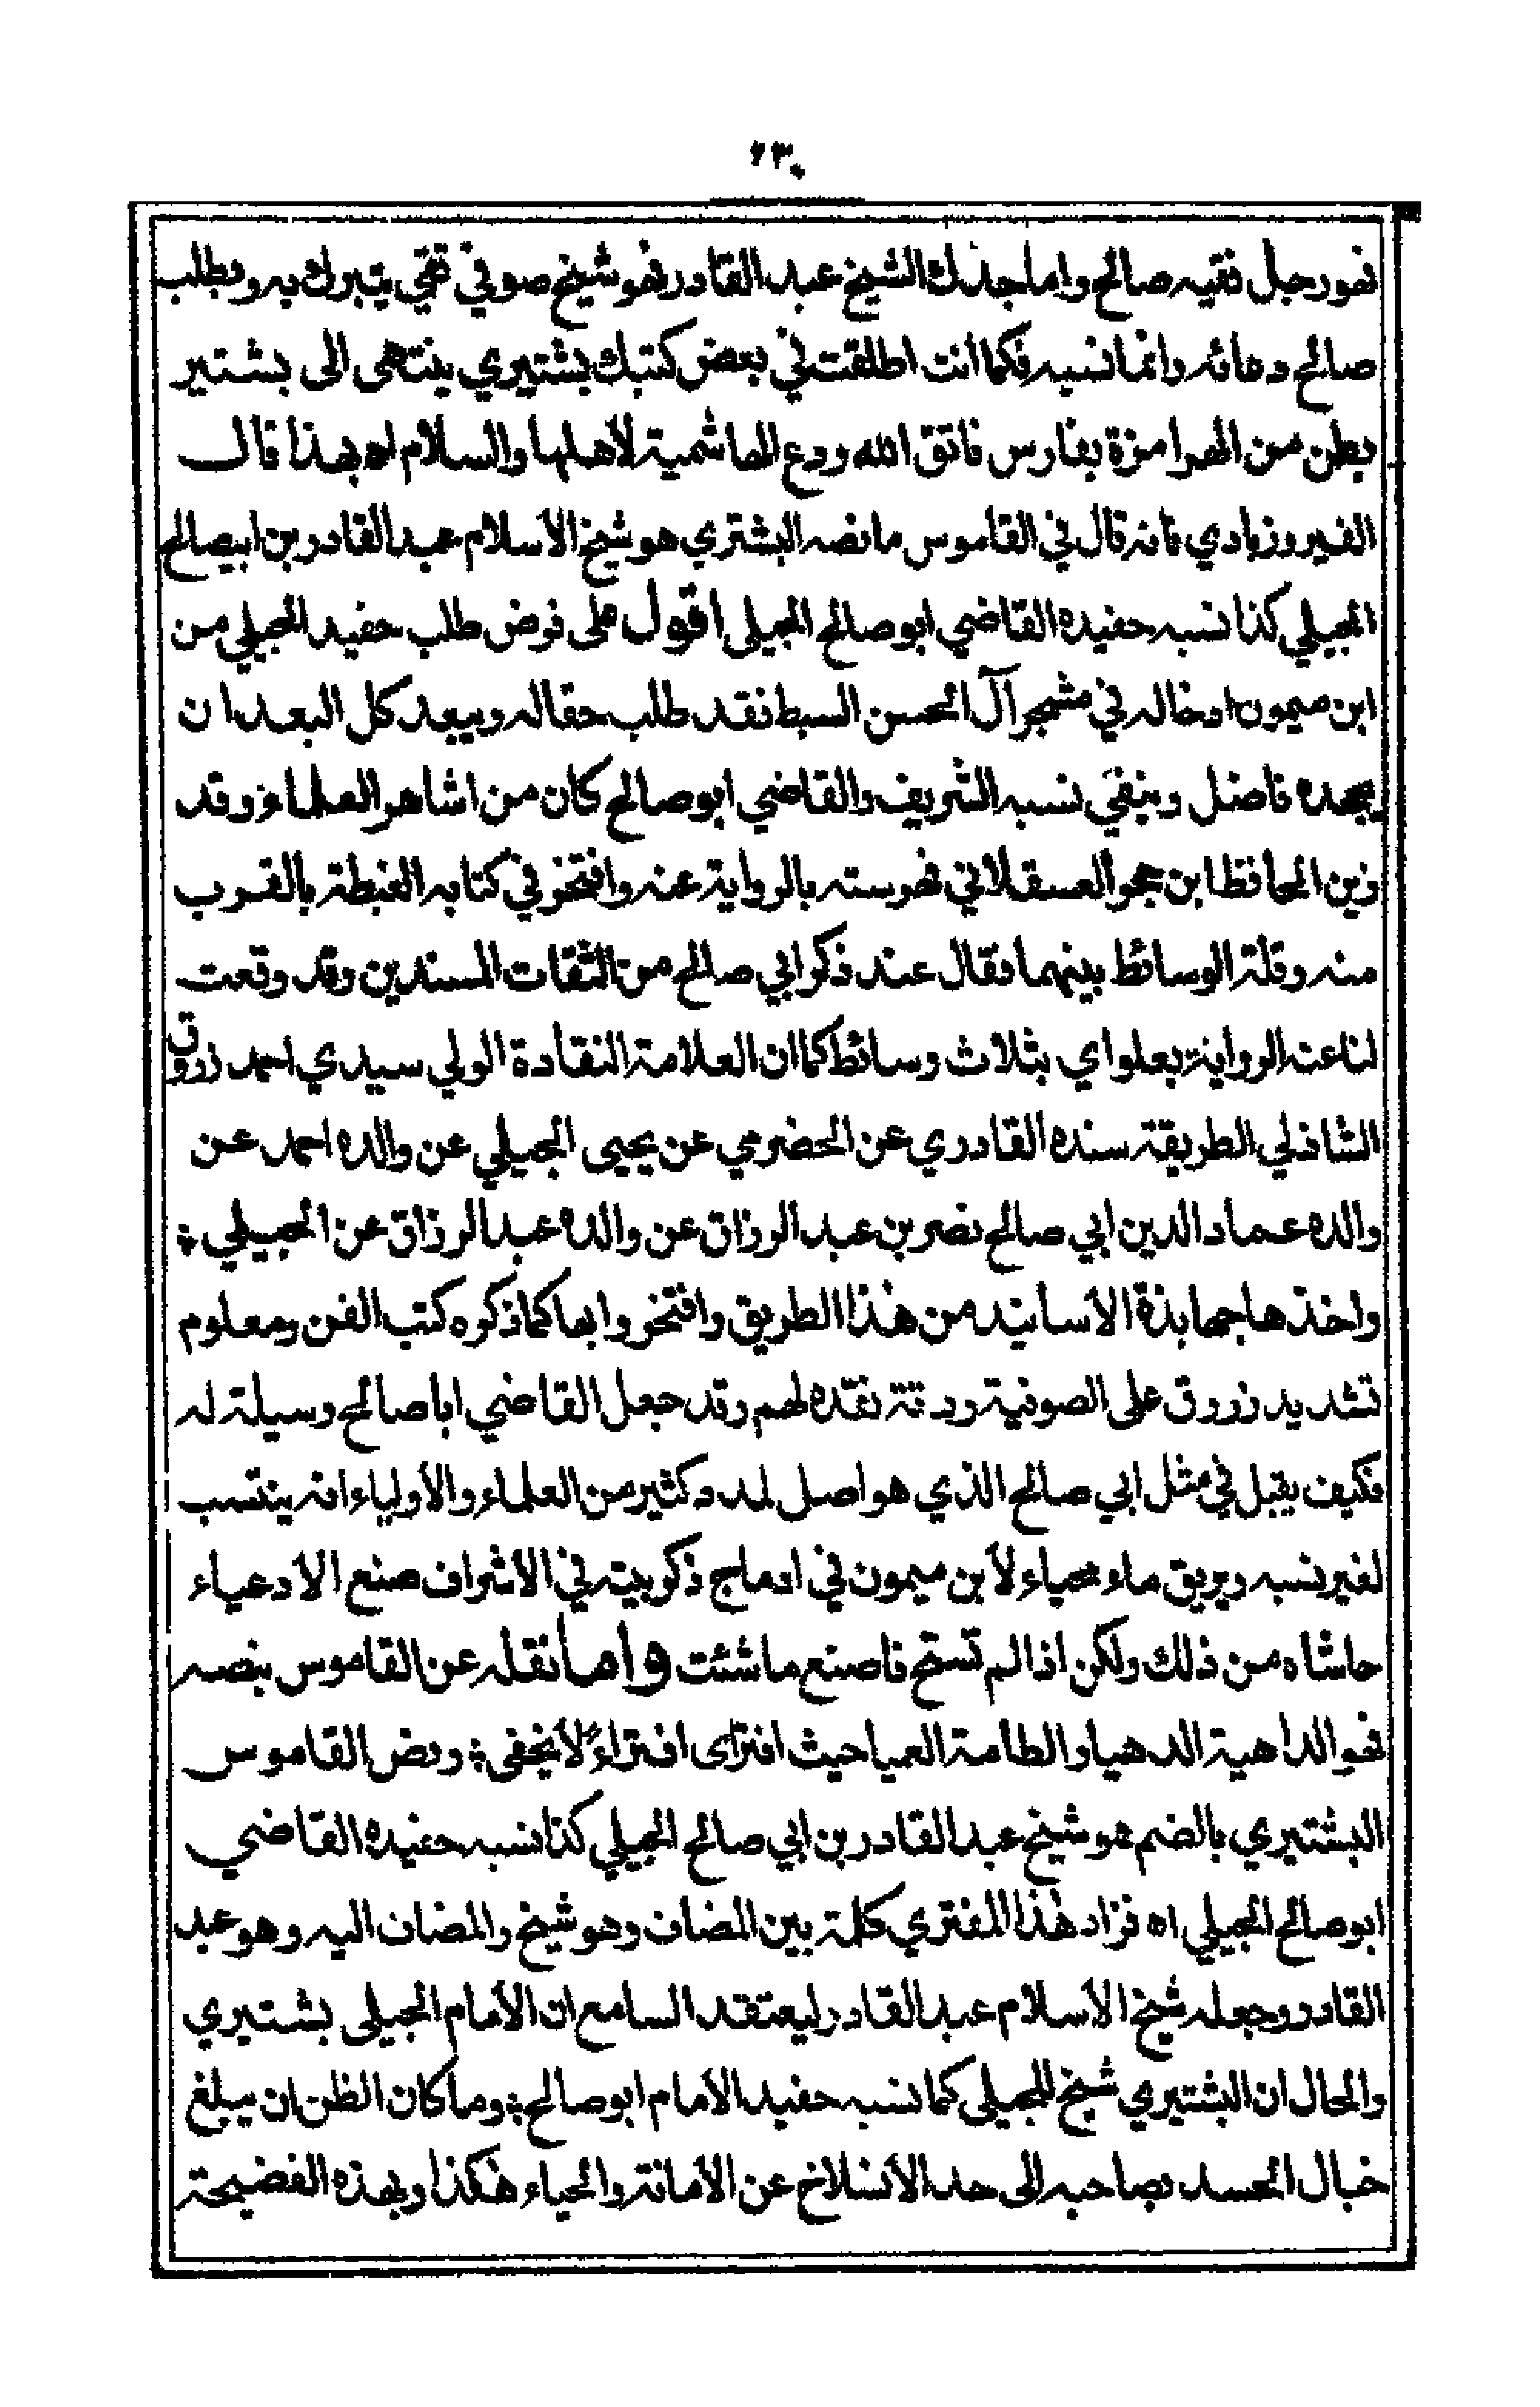 ٦٣
فهو رجل فقيه صالح واما جدك الشيخ عبد القادر فهو شيخ صوفي تقي يتبرك به ويطلب
صالح دعائه وانما نسبه فكما انت اطلقت في بعض كتبك بشتيري ينتهى الى بشتير
بطن من الهرامزة بفارس فاتق الله ودع الهاشمية لأهلها والسلام اه بهذا قال
الفيروزبادي فانه قال في القاموس ما نصه البشتري هو شيخ الاسلام عبد القادر بن ابي صالح
الجيلي كذا نسبه حفيده القاضي ابو صالح الجيلى اقول على فرض طلب حفيد الجيلي من
ابن ميمون ادخاله في مشجر آل الحسن السبط فقد طلب حقا له ويبعد كل البعد ان
يجحده فاضل وينفي نسبه الشريف والقاضي ابو صالح كان من اشاهر العلماء وقد
زين الحافظ ابن حجر العسقلاني فهرسته بالرواية عنه وافتخر في كتابه الغبطة بالقرب
منه وقلة الوسائط بينهما فقال عند ذكر ابي صالح من الثقات المسندين وقد وقعت
لنا عنه الرواية بعلو اي بثلاث وسائط كما ان العلامة النقادة الولي سيدي احمد زروق
الشاذلي الطريقة سنده القادري عن الحضرمي عن يحيى الجيلي عن والده احمد عن
والده عماد الدين ابي صالح نصر بن عبد الرزاق عن والده عبد الرزاق عن الجيلي ؛
واخذها جهابذة الأسانيد من هذا الطريق وافتخروا بها كما ذكره كتب الفن ومعلوم
تشديد زروق على الصوفية ودقة نقده لهم وقد جعل القاضي ابا صالح وسيلة له
فكيف يقبل في مثل ابي صالح الذي هو اصل لمدد كثير من العلماء والأولياء انه ينتسب
لغير نسبه ويريق ماء محياء لأبن ميمون في ادماج ذكر بيته في الأشراف صنع الادعياء
حاشاه من ذلك ولكن اذا لم تستح فاصنع ما شئت واما نقله عن القاموس بنصه
فهو الداهية الدهيا والطامة العميا حيث افترى افتراءً لا يخفى ؛ ونص القاموس
البشتيري بالضم هو شيخ عبد القادر بن ابي صالح الجيلي كذا نسبه حفيده القاضي
ابو صالح الجيلي اه فزاد هذا المفتري كلمة بين المضاف وهو شيخ والمضاف اليه وهو عبد
القادر وجعله شيخ الأسلام عبد القادر ليعتقد السامع ان الأمام الجيلى بشتيري
والحال ان البشتيري شيخ للجيلى كما نسبه حفيد الأمام ابو صالح ؛ وما كان الظن ان يبلغ
خبال الحسد بصاحبه الى حد الأنسلاخ عن الأمانة والحياء هكذا وبهذه الفضيحة